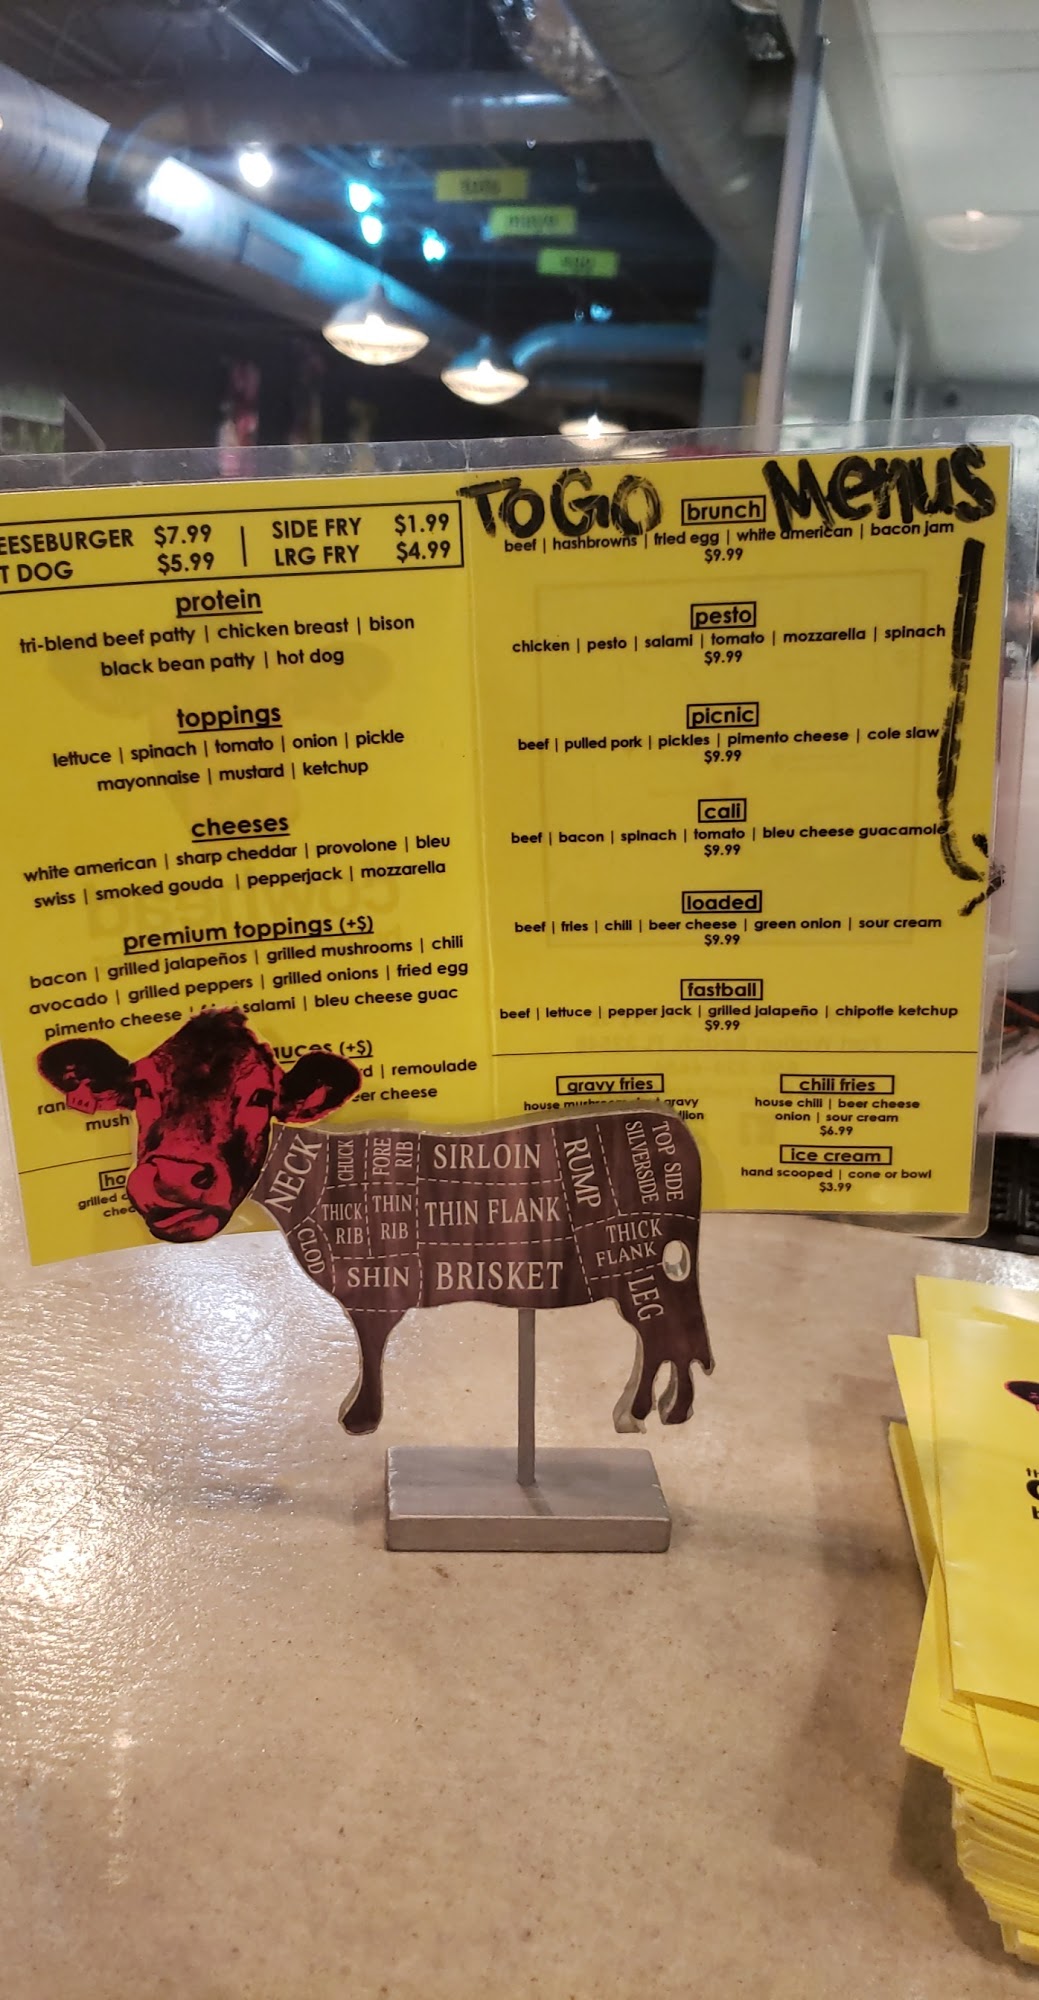 TOGO Menus
EESEBURGER $7.99 | SIDE FRY $1.99
T DOG $5.99 | LRG FRY $4.99
protein
tri-blend beef patty | chicken breast | bison
black bean patty | hot dog
toppings
lettuce | spinach | tomato | onion | pickle
mayonnaise | mustard | ketchup
cheeses
white american | sharp cheddar | provolone | bleu
swiss | smoked gouda | pepperjack | mozzarella
premium toppings (+$)
bacon | grilled jalapeños | grilled mushrooms | chili
avocado | grilled peppers | grilled onions | fried egg
pimento cheese salami | bleu cheese guac
auces (+$)
ran rd | remoulade
mush eer cheese
ho
grilled c
chee
brunch
beef | hashbrowns | fried egg | white american | bacon jam
$9.99
pesto
chicken | pesto | salami | tomato | mozzarella | spinach
$9.99
picnic
beef | pulled pork | pickles | pimento cheese | cole slaw
$9.99
cali
beef | bacon | spinach | tomato | bleu cheese guacamole
$9.99
loaded
beef | fries | chili | beer cheese | green onion | sour cream
$9.99
fastball
beef | lettuce | pepper jack | grilled jalapeño | chipotle ketchup
$9.99
gravy fries
house gravy
chili fries
house chili | beer cheese
onion | sour cream
$6.99
ice cream
hand scooped | cone or bowl
$3.99
NECK
CHUCK
FORE RIB
SIRLOIN
RUMP
SILVERSIDE
TOP SIDE
CLOD
THICK RIB
THIN RIB
THIN FLANK
THICK FLANK
SHIN
BRISKET
LEG